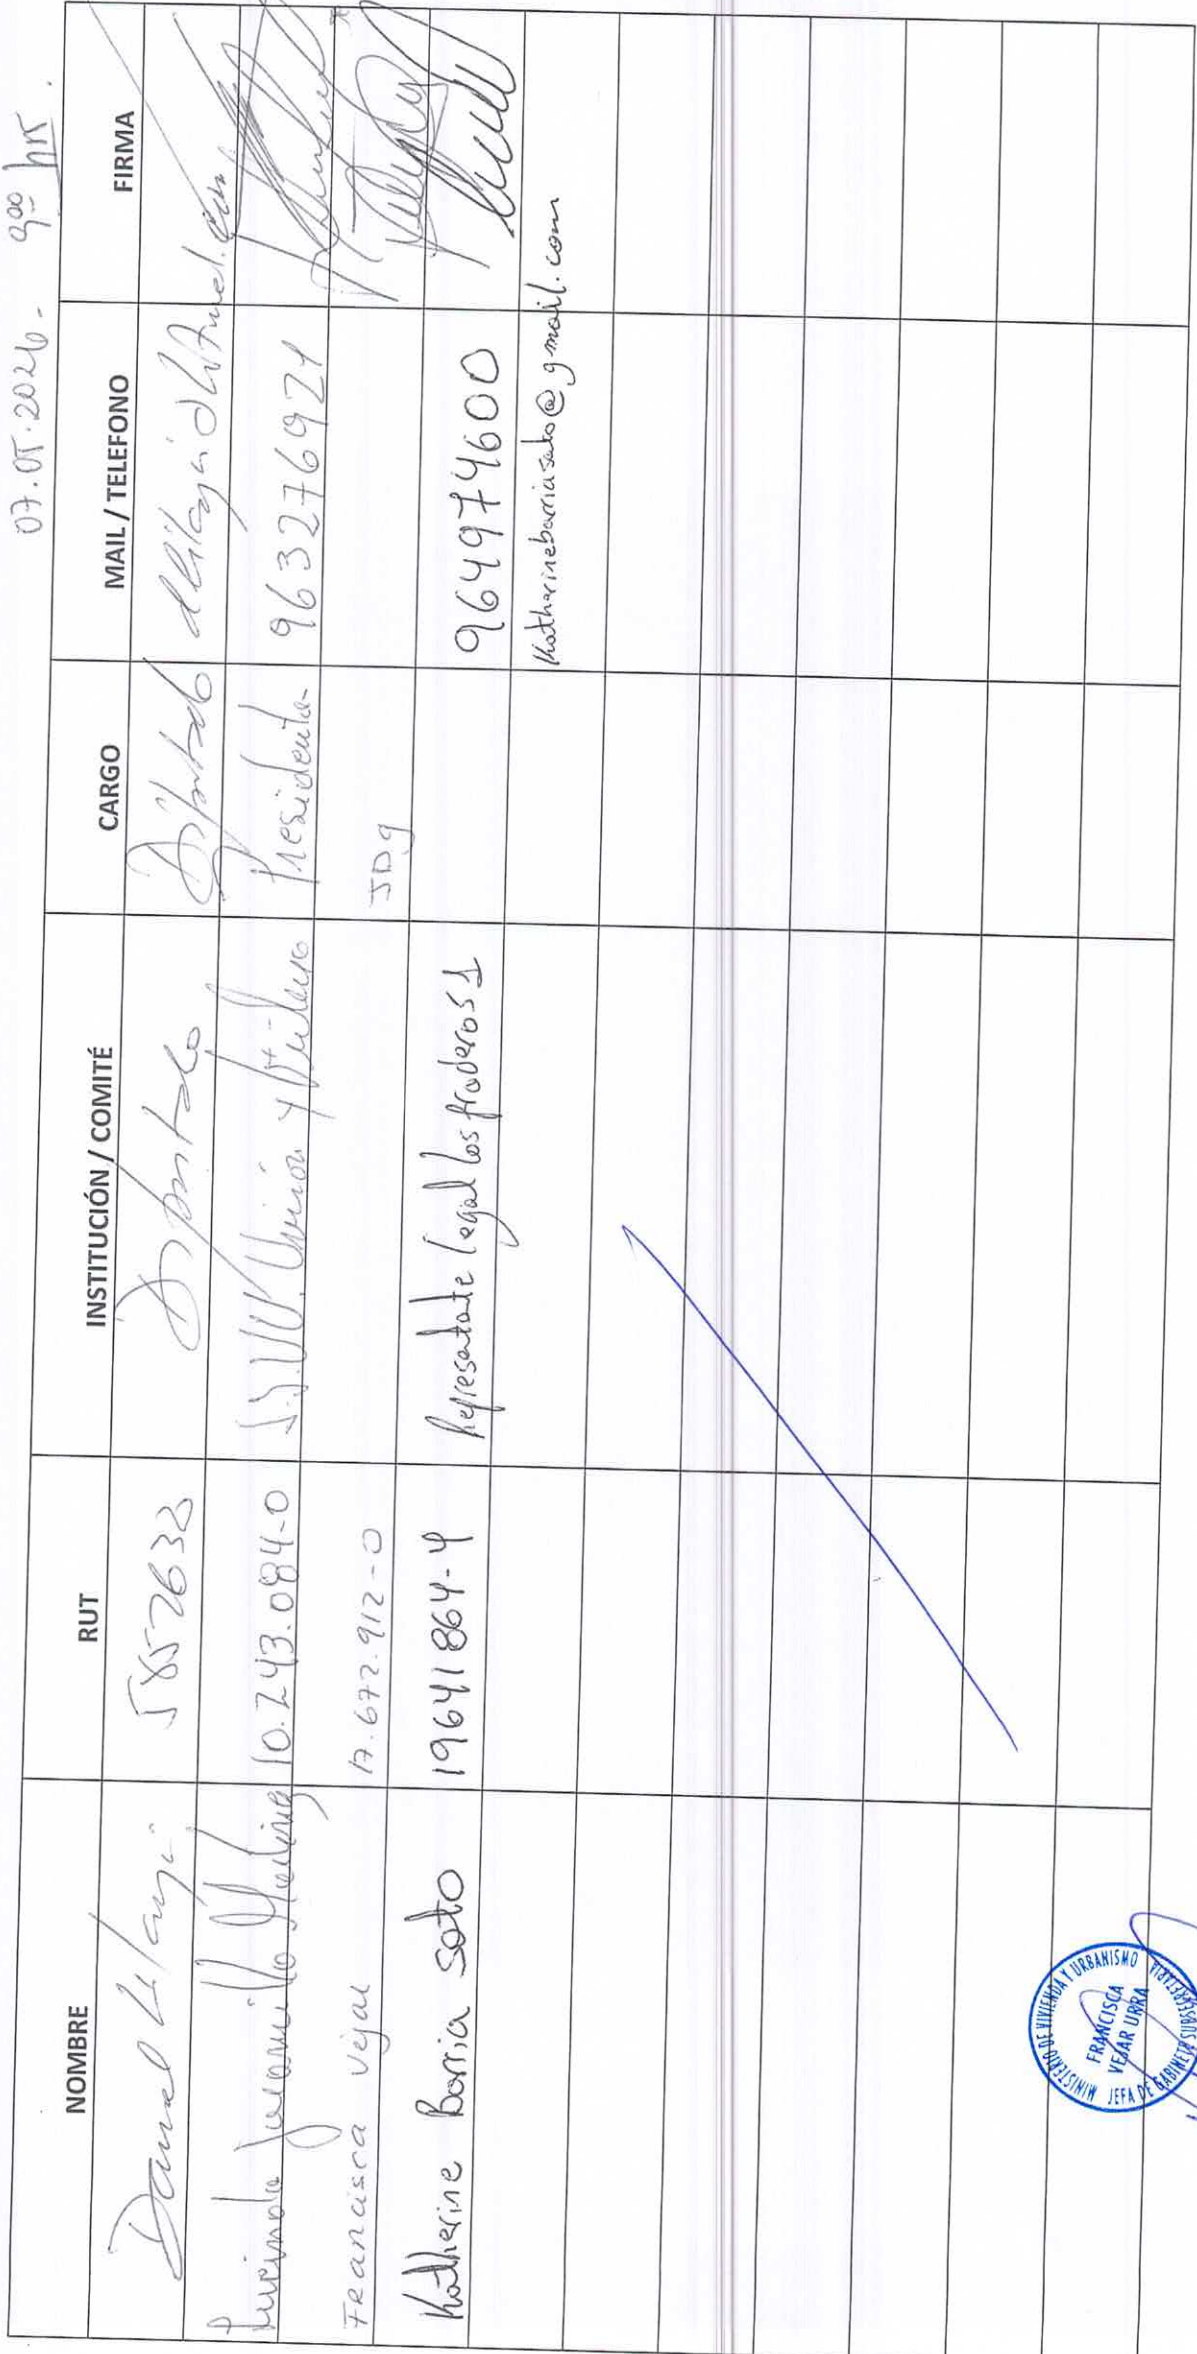 07.05.2026.- 9:00 hrs.
NOMBRE RUT INSTITUCIÓN / COMITÉ CARGO MAIL / TELEFONO FIRMA
Daniel Lilayu 5852632 Diputado Diputado
Lucinda Jaramillo 10.243.084-0 JJVV. Unión y Presidenta 963276921
Francisca Vejar 17.672.912-0 JDg
Katherine Barria Soto 19641864-4 Representante legal los 1 964974600
Katherinebarriasoto@gmail.com
MINISTERIO DE VIVIENDA Y URBANISMO
FRANCISCA
VEJAR URRA
JEFA DE GABINETE SUBSECRETARIA